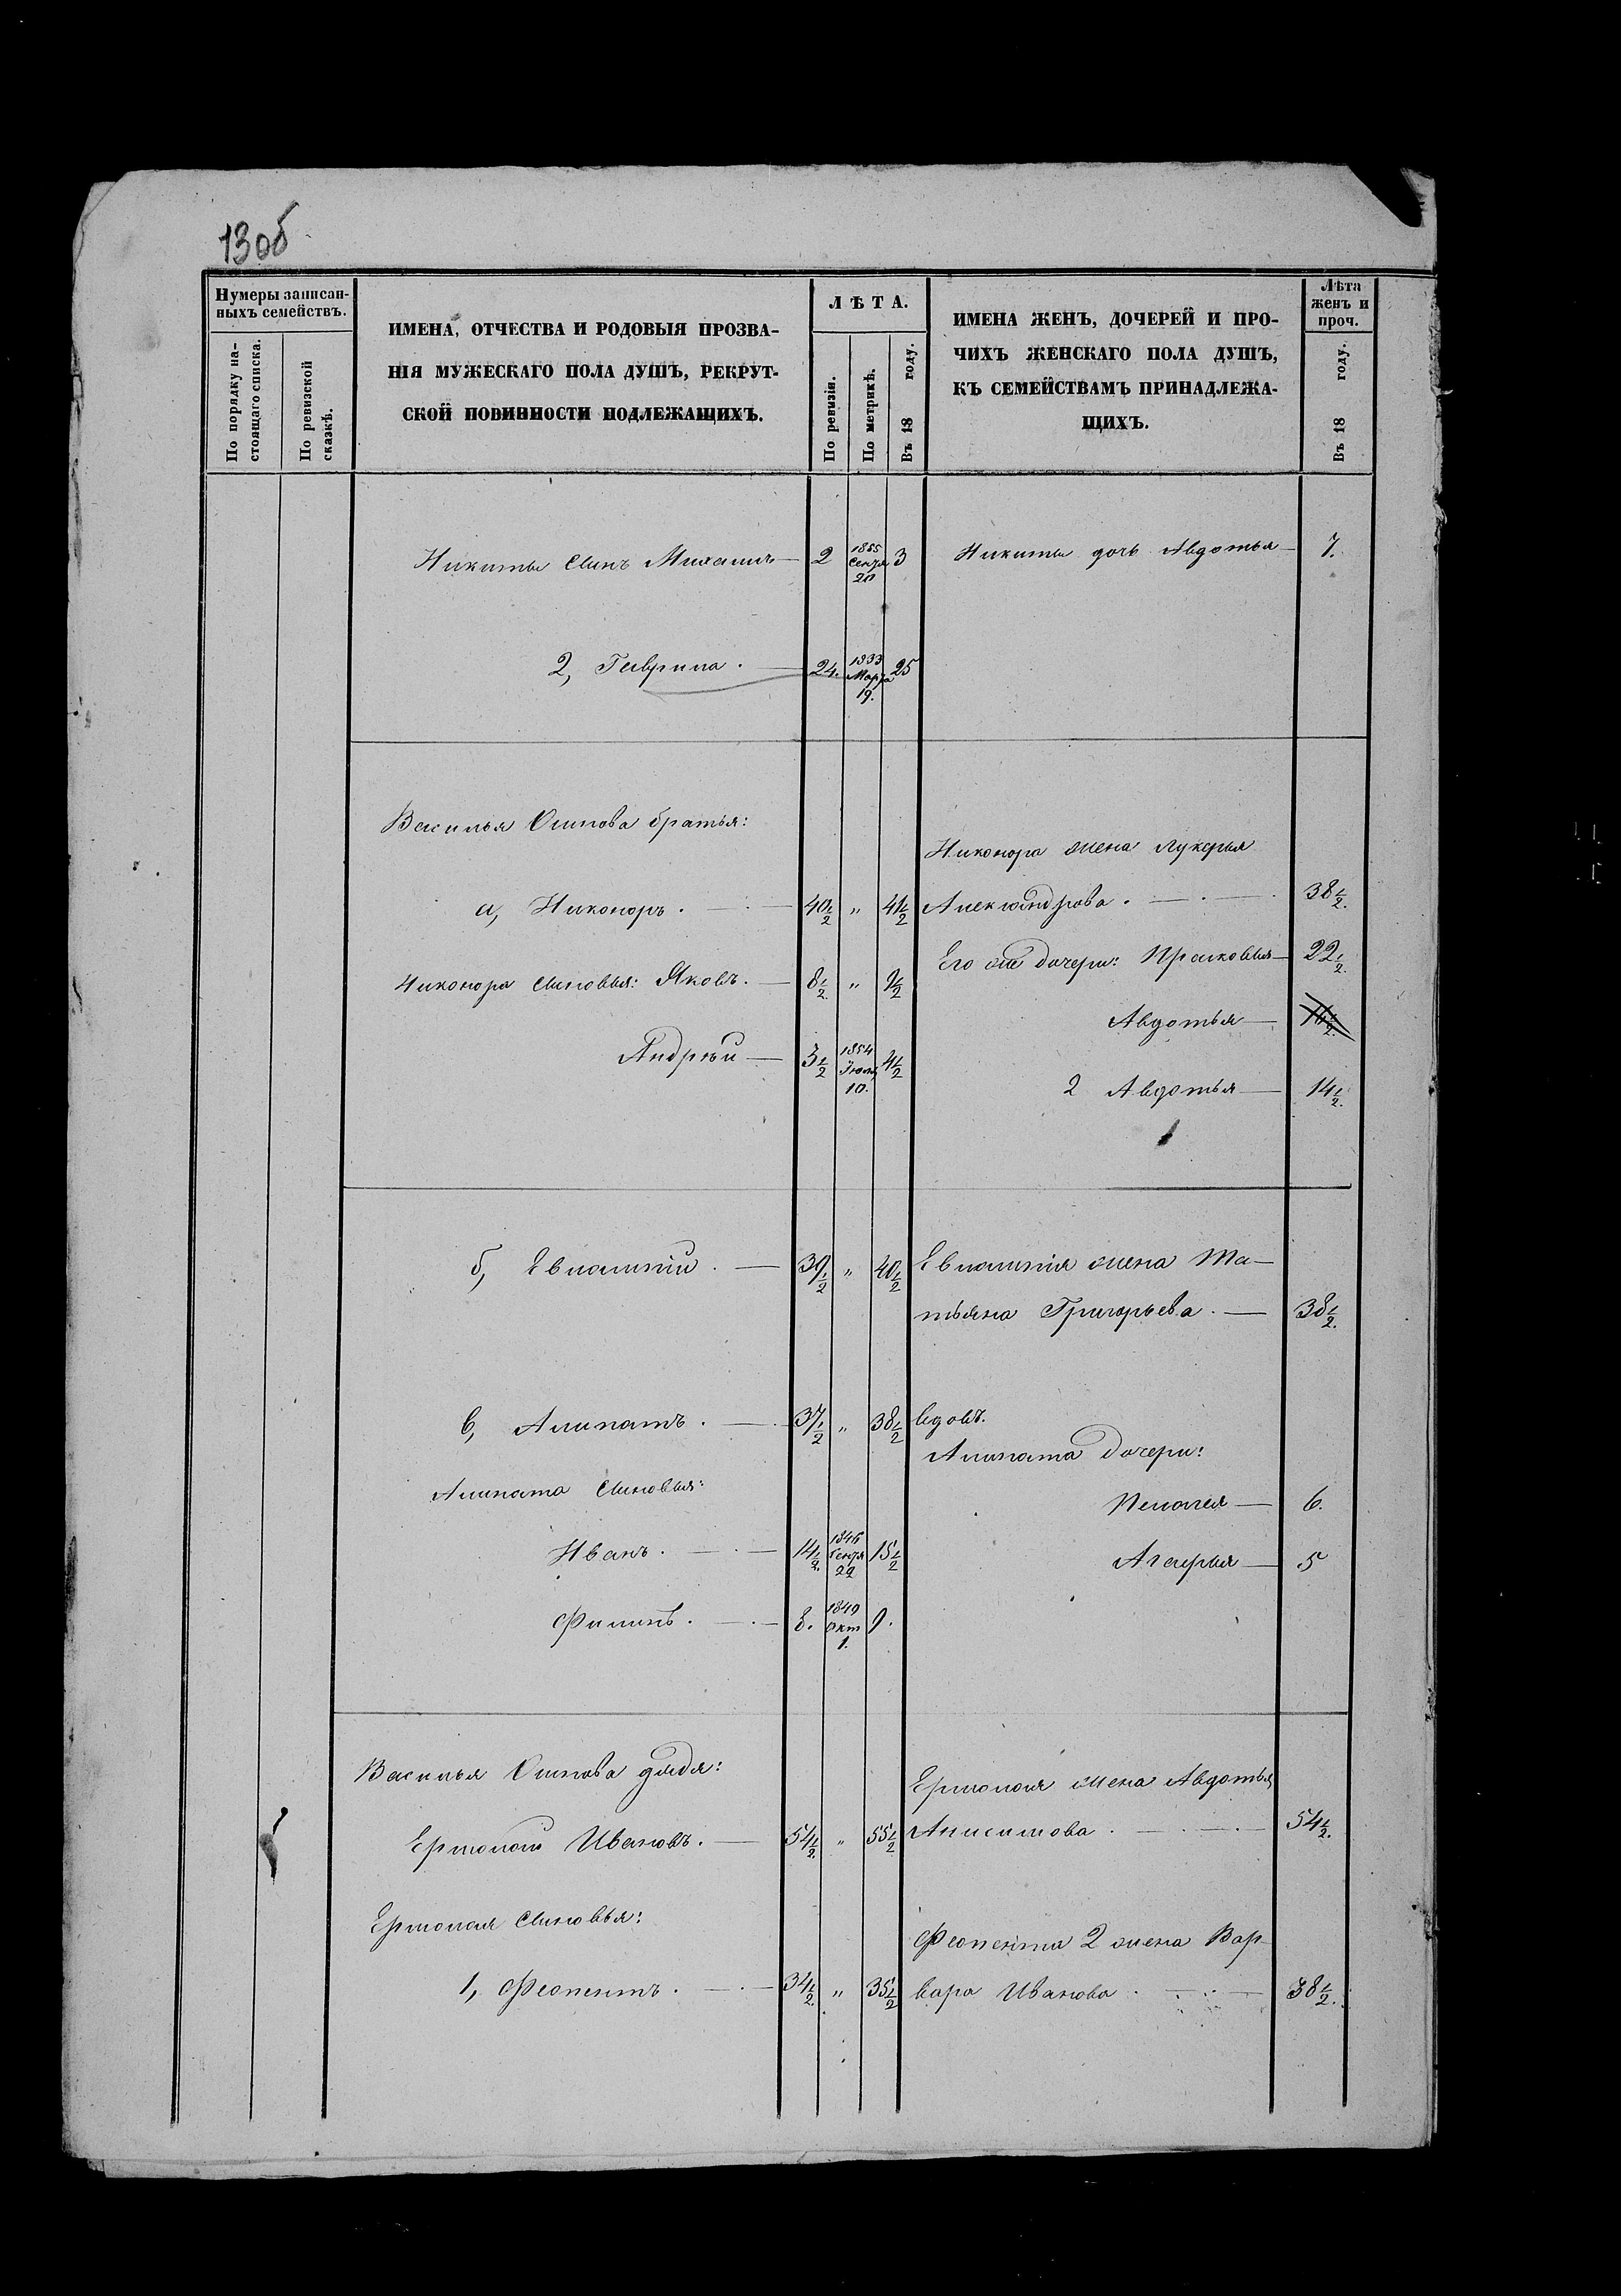 130б
Нумеры записан-
ныхъ семействъ.
По порядку на-
стоящаго списка.
По ревизской
сказкѣ.
ИМЕНА, ОТЧЕСТВА И РОДОВЫЯ ПРОЗВА-
НІЯ МУЖЕСКАГО ПОЛА ДУШЪ, РЕКРУТ-
СКОЙ ПОВИННОСТИ ПОДЛЕЖАЩИХЪ.
ЛѢТА.
По ревизіи.
По метрикѣ.
Въ 18 году.
ИМЕНА ЖЕНЪ, ДОЧЕРЕЙ И ПРО-
ЧИХЪ ЖЕНСКАГО ПОЛА ДУШЪ,
КЪ СЕМЕЙСТВАМЪ ПРИНАДЛЕЖА-
ЩИХЪ.
Лѣта
женъ и
проч.
Въ 18 году.
Никиты сынъ Михаилъ — 2 1855 Сентя 20 3 Никиты дочь Авдотья — 7.
2, Гаврила. — 24. 1833 Марта 19. 25
Василья Осипова братья:
Никонора жена Лукерья
а, Никоноръ. — 40½ " 41½ Александрова. — 38½.
Его же дочери: Прасковья — 22½.
Никонора сыновья: Яковъ. — 8½. " 9½
Авдотья —
Андрей — 3½ 1854 Іюля 10. 4½
2 Авдотья — 14½.
б, Евлампій. — 39½ " 40½ Евлампія жена Та-
тьяна Григорьева. — 38½.
в, Алипатъ. — 37½ " 38½ вдовъ.
Алипата дочери:
Алипата сыновья:
Пелагея — 6.
Иванъ. — 14½. 1846 22 15½
Агафья — 5
Филипъ. — 8. 1849 Окт 1. 9.
Василья Осипова дядя:
Ермолая жена Авдотья
Ермолай Ивановъ. — 54½. " 55½ Анисимова. — 54½.
Ермолая сыновья:
Феопента 2 жена Вар-
1, Феопентъ. — 34½. " 35½ вара Иванова. — 38½.